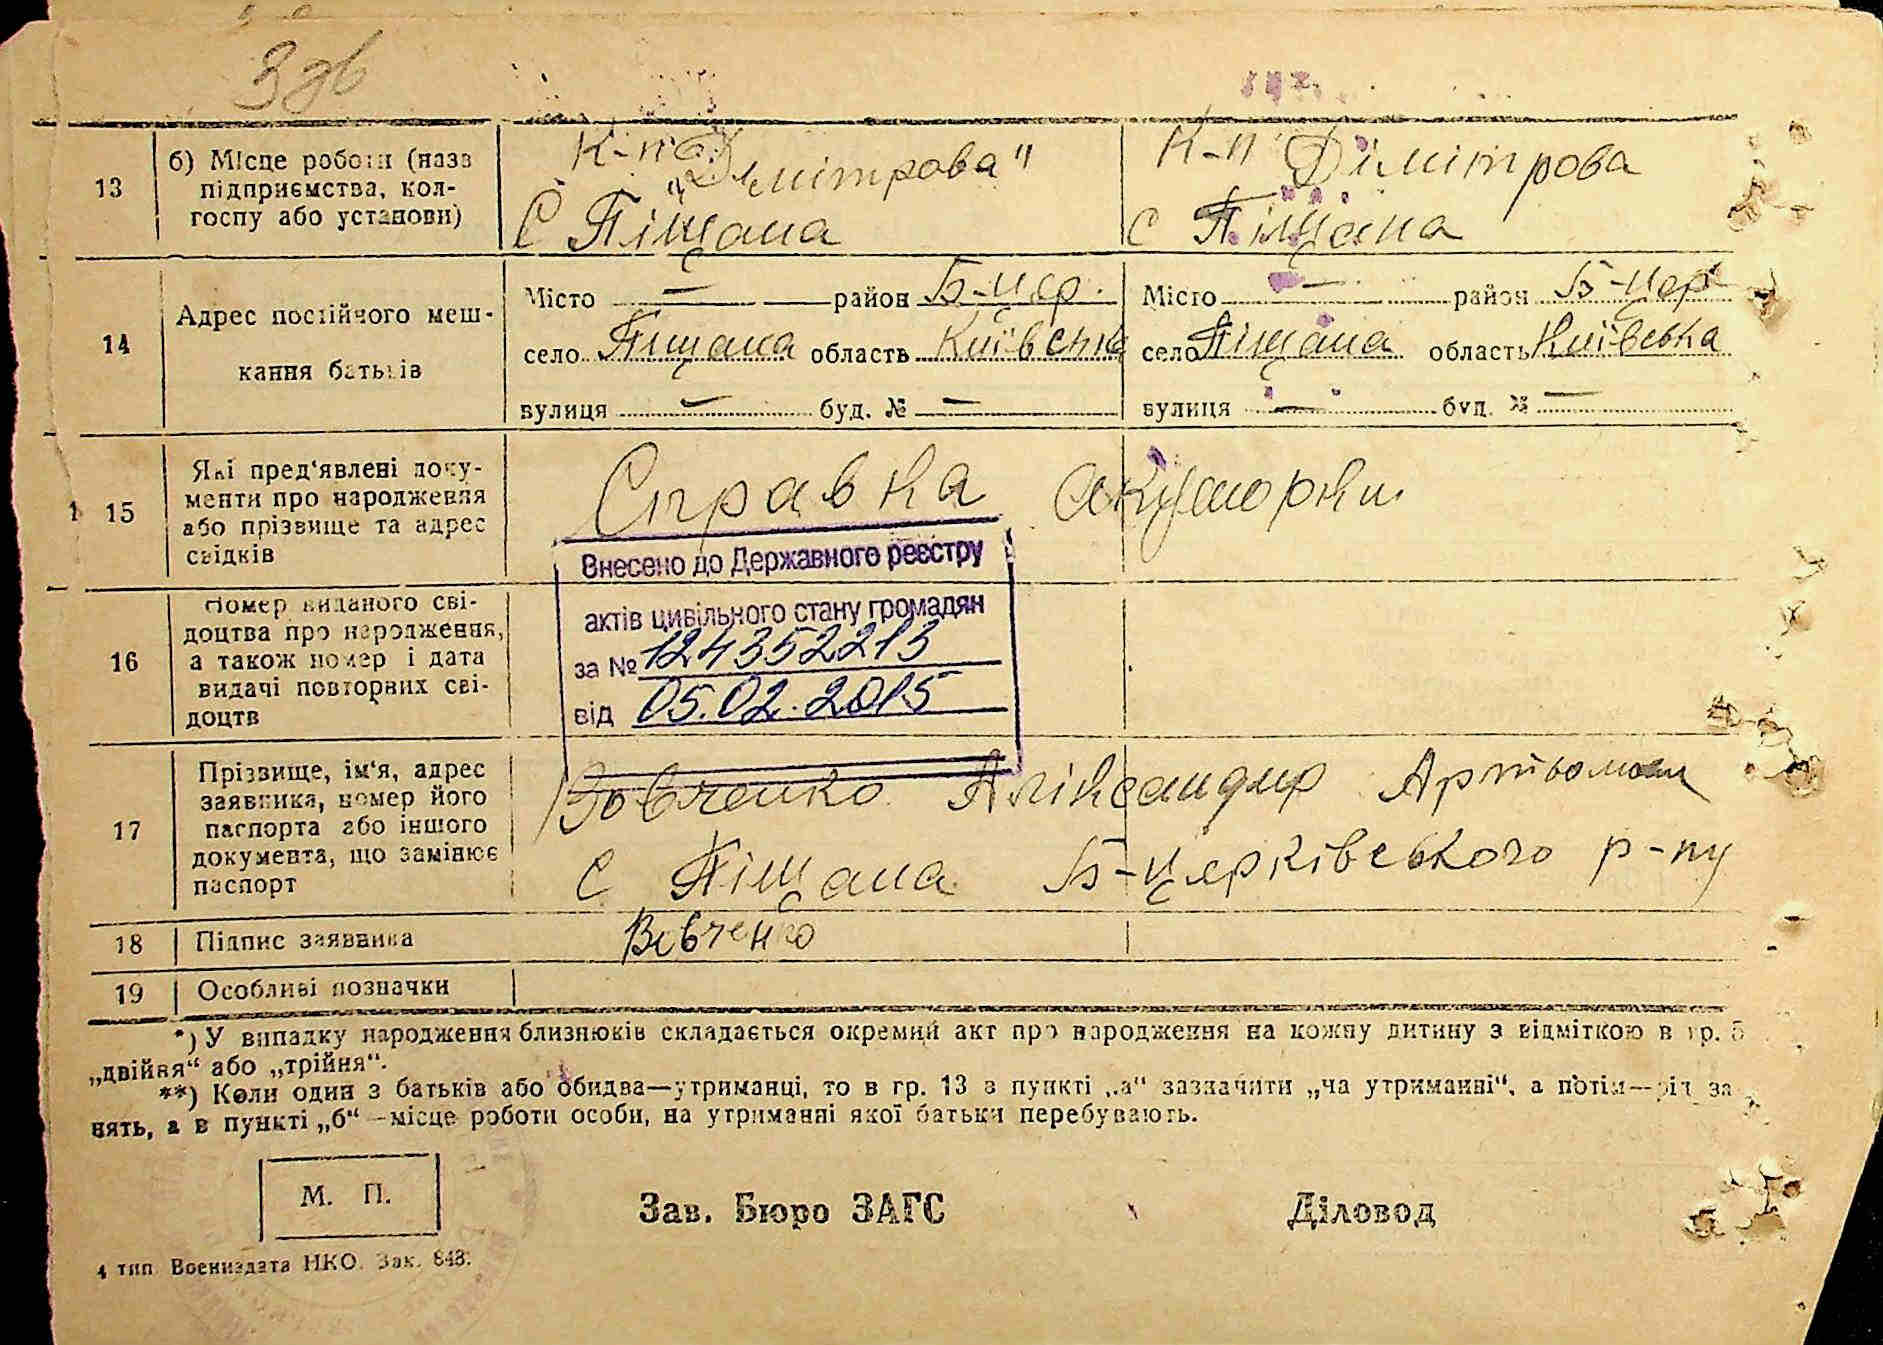 3 зв
13
б) Місце роботи (назв
підприємства, кол-
госпу або установи)
К-п "Дімітрова"
с Піщана
К-п Дімітрова
с Піщана
14
Адрес постійного меш-
кання батьків
Місто — район Б-цер.
село Піщана область Київська
вулиця — буд. № —
Місто — район Б-цер
село Піщана область Київська
вулиця — буд. № —
15
Які пред'явлені доку-
менти про народження
або прізвище та адрес
свідків
Справка акушорки
16
Номер виданого сві-
доцтва про народження,
а також номер і дата
видачі повторних сві-
доцтв
Внесено до Державного реєстру
актів цивільного стану громадян
за № 124352213
від 05.02.2015
17
Прізвище, ім'я, адрес
заявника, номер його
паспорта або іншого
документа, що замінює
паспорт
Вовченко Аліксандир
с Піщана Б-церківського р-ну
18
Підпис заявника
Вовченко
19
Особливі позначки
*) У випадку народження близнюків складається окремий акт про народження на кожну дитину з відміткою в гр. 5
„двійня“ або „трійня“.
**) Коли один з батьків або обидва—утриманці, то в гр. 13 в пункті „а“ зазначити „на утриманні“, а потім—рід за
нять, а в пункті „б“—місце роботи особи, на утриманні якої батьки перебувають.
М. П.
Зав. Бюро ЗАГС
Діловод
4 тип. Воениздата НКО. Зак. 843.